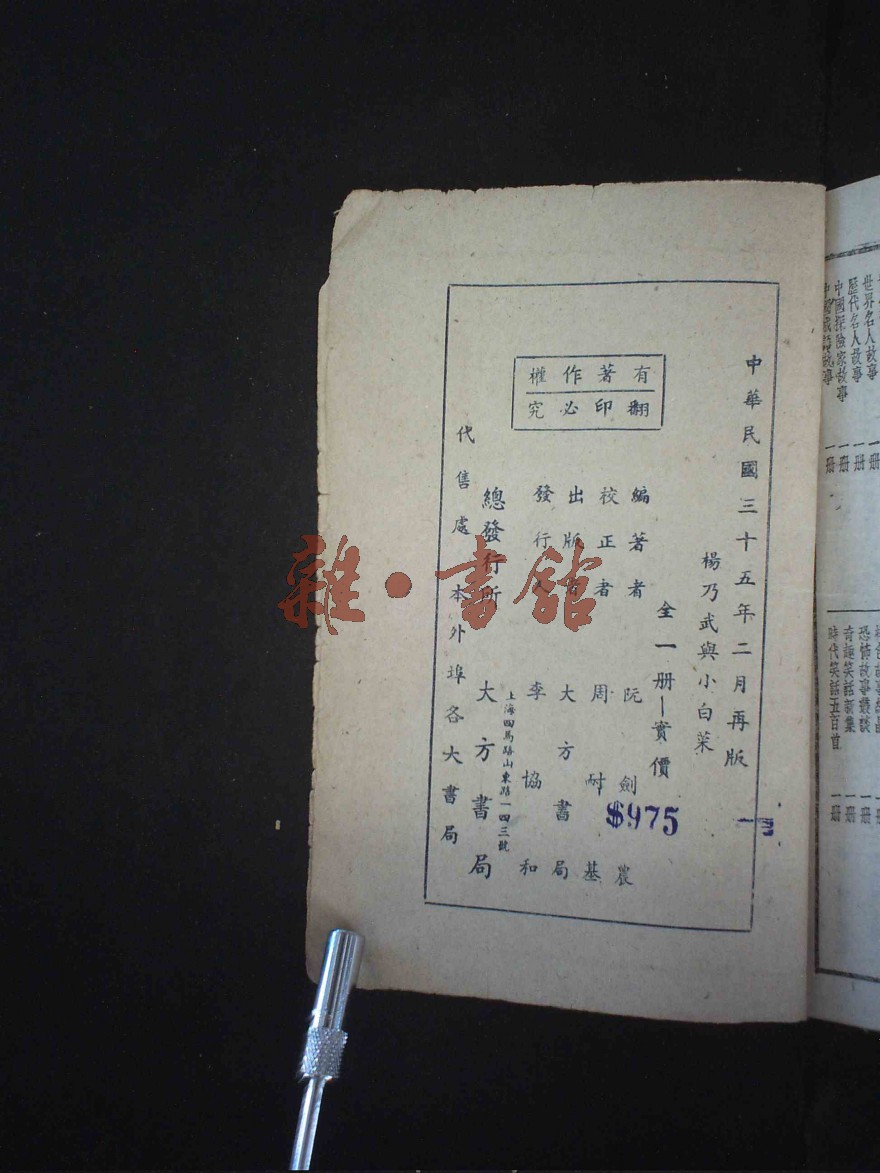 中華民國三十五年二月再版
楊乃武與小白菜
全一册—實價
$975
有著作權
翻印必究
編著者 阮劍農
校正者 周耐基
出版者 大方書局
發行人 李協和
上海四馬路山東路一四三號
總發行所 大方書局
代售處 本外埠各大書局
雜·書館
世界名人故事 一册
歷代名人故事 一册
中國探險家故事 一册
一册
奇趣笑話新集 一册
時代笑話五百首 一册